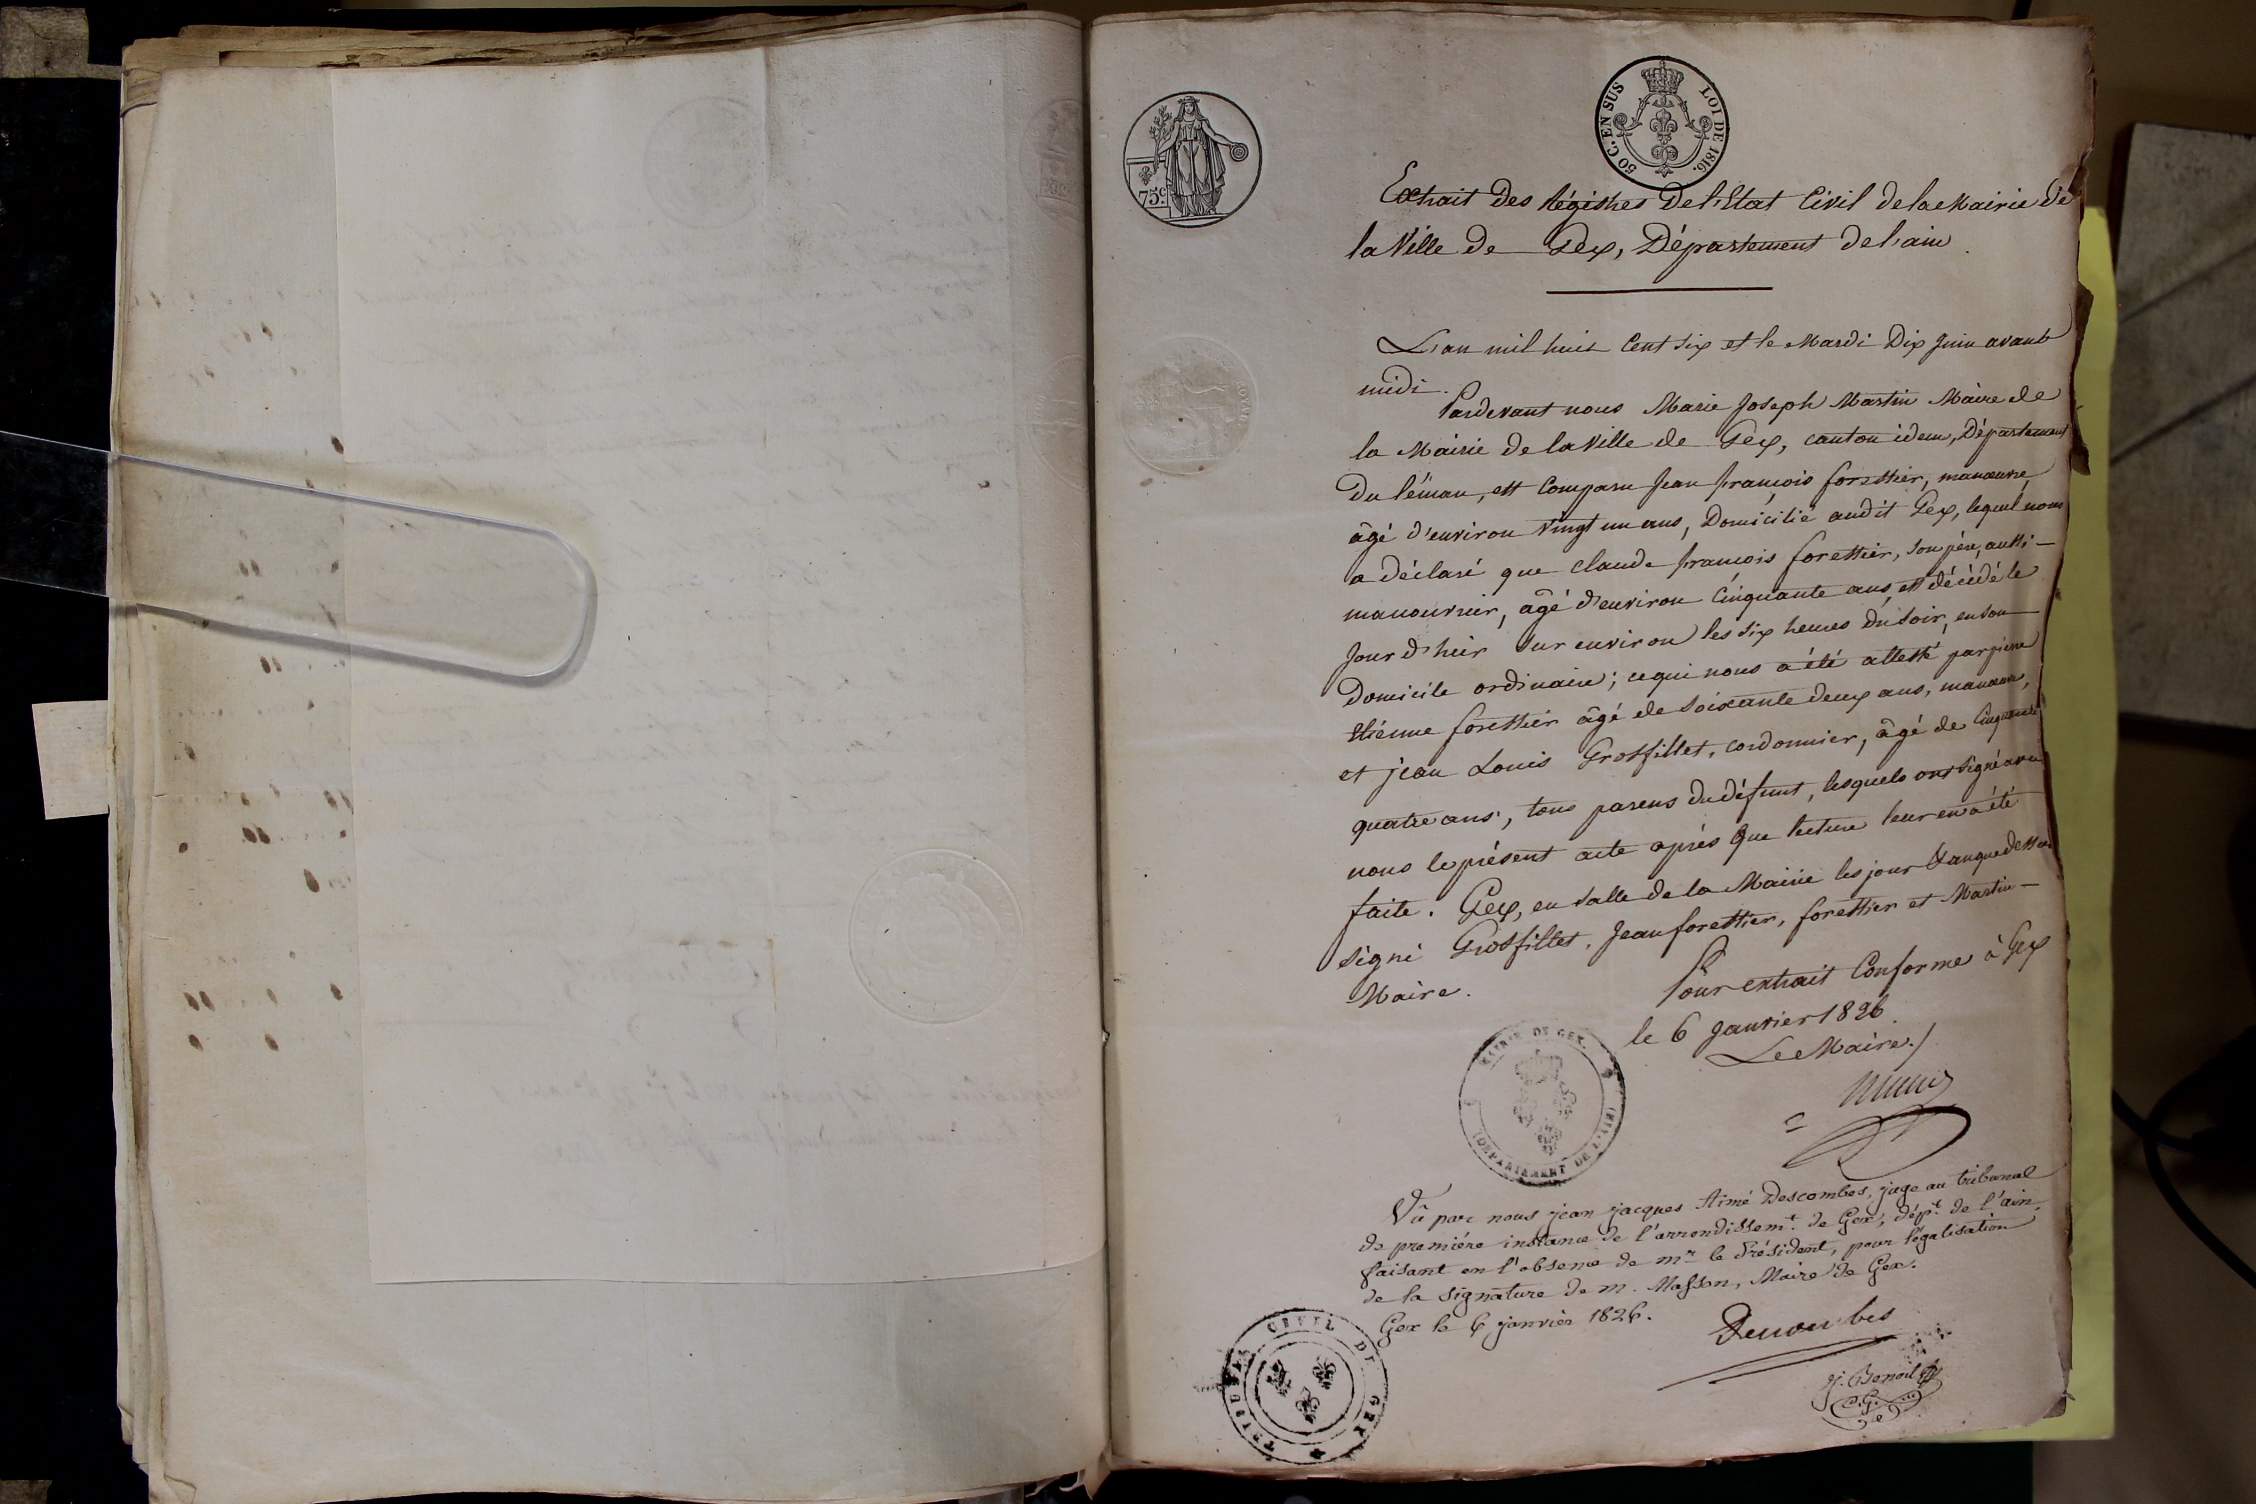 50 C. EN SUS LOI DE 1816.
75c.
Extrait Des Régistres De l'Etat Civil de la Mairie De
la Ville de Gex, Département de l'ain.
L'an mil huit Cent six et le Mardi Dix Juin avant
midi.
Pardevant nous Marie Joseph Martin Maire de
la Mairie de la Ville de Gex, canton idem, Département
Du léman, est Comparu Jean françois forestier, manœuvre,
âgé d'environ vingt un ans, Domicilié audit Gex, lequel nous
a déclaré que Claude françois forestier, son père, aussi
manouvrier, âgé d'environ Cinquante ans, est décédé le
Jour d'hier sur environ les six heures du soir, en son
Domicile ordinaire; ce qui nous a été attesté par pierre
Etienne forestier âgé de soixante deux ans, manœuvre,
et jean Louis Grosfillet, cordonnier, âgé de Cinquante
quatre ans, tous parens du défunt, lesquels ont signé avec
nous le présent acte après que lecture leur en a été
faite. Gex, en salle de la Mairie les jour & an que dessus
signé Grosfillet, Jean forestier, forestier et Martin
Maire.
Pour extrait Conforme à Gex
le 6 Janvier 1826.
Le Maire.
MAIRIE DE GEX.
(DEPARTEMENT DE L'AIN)
Vû par nous jean jacques Aimé Descombes, juge au tribunal
de première instance de l'arrondissemt. de Gex, dépt. de l'ain,
faisant en l'absence de mr le Président, pour légalisation
de la signature de m. Masson, Maire de Gex.
Gex le 6 janvier 1826.
Descombes
TRIBUNAL CIVIL DE GEX
J. Benoit
C. G.